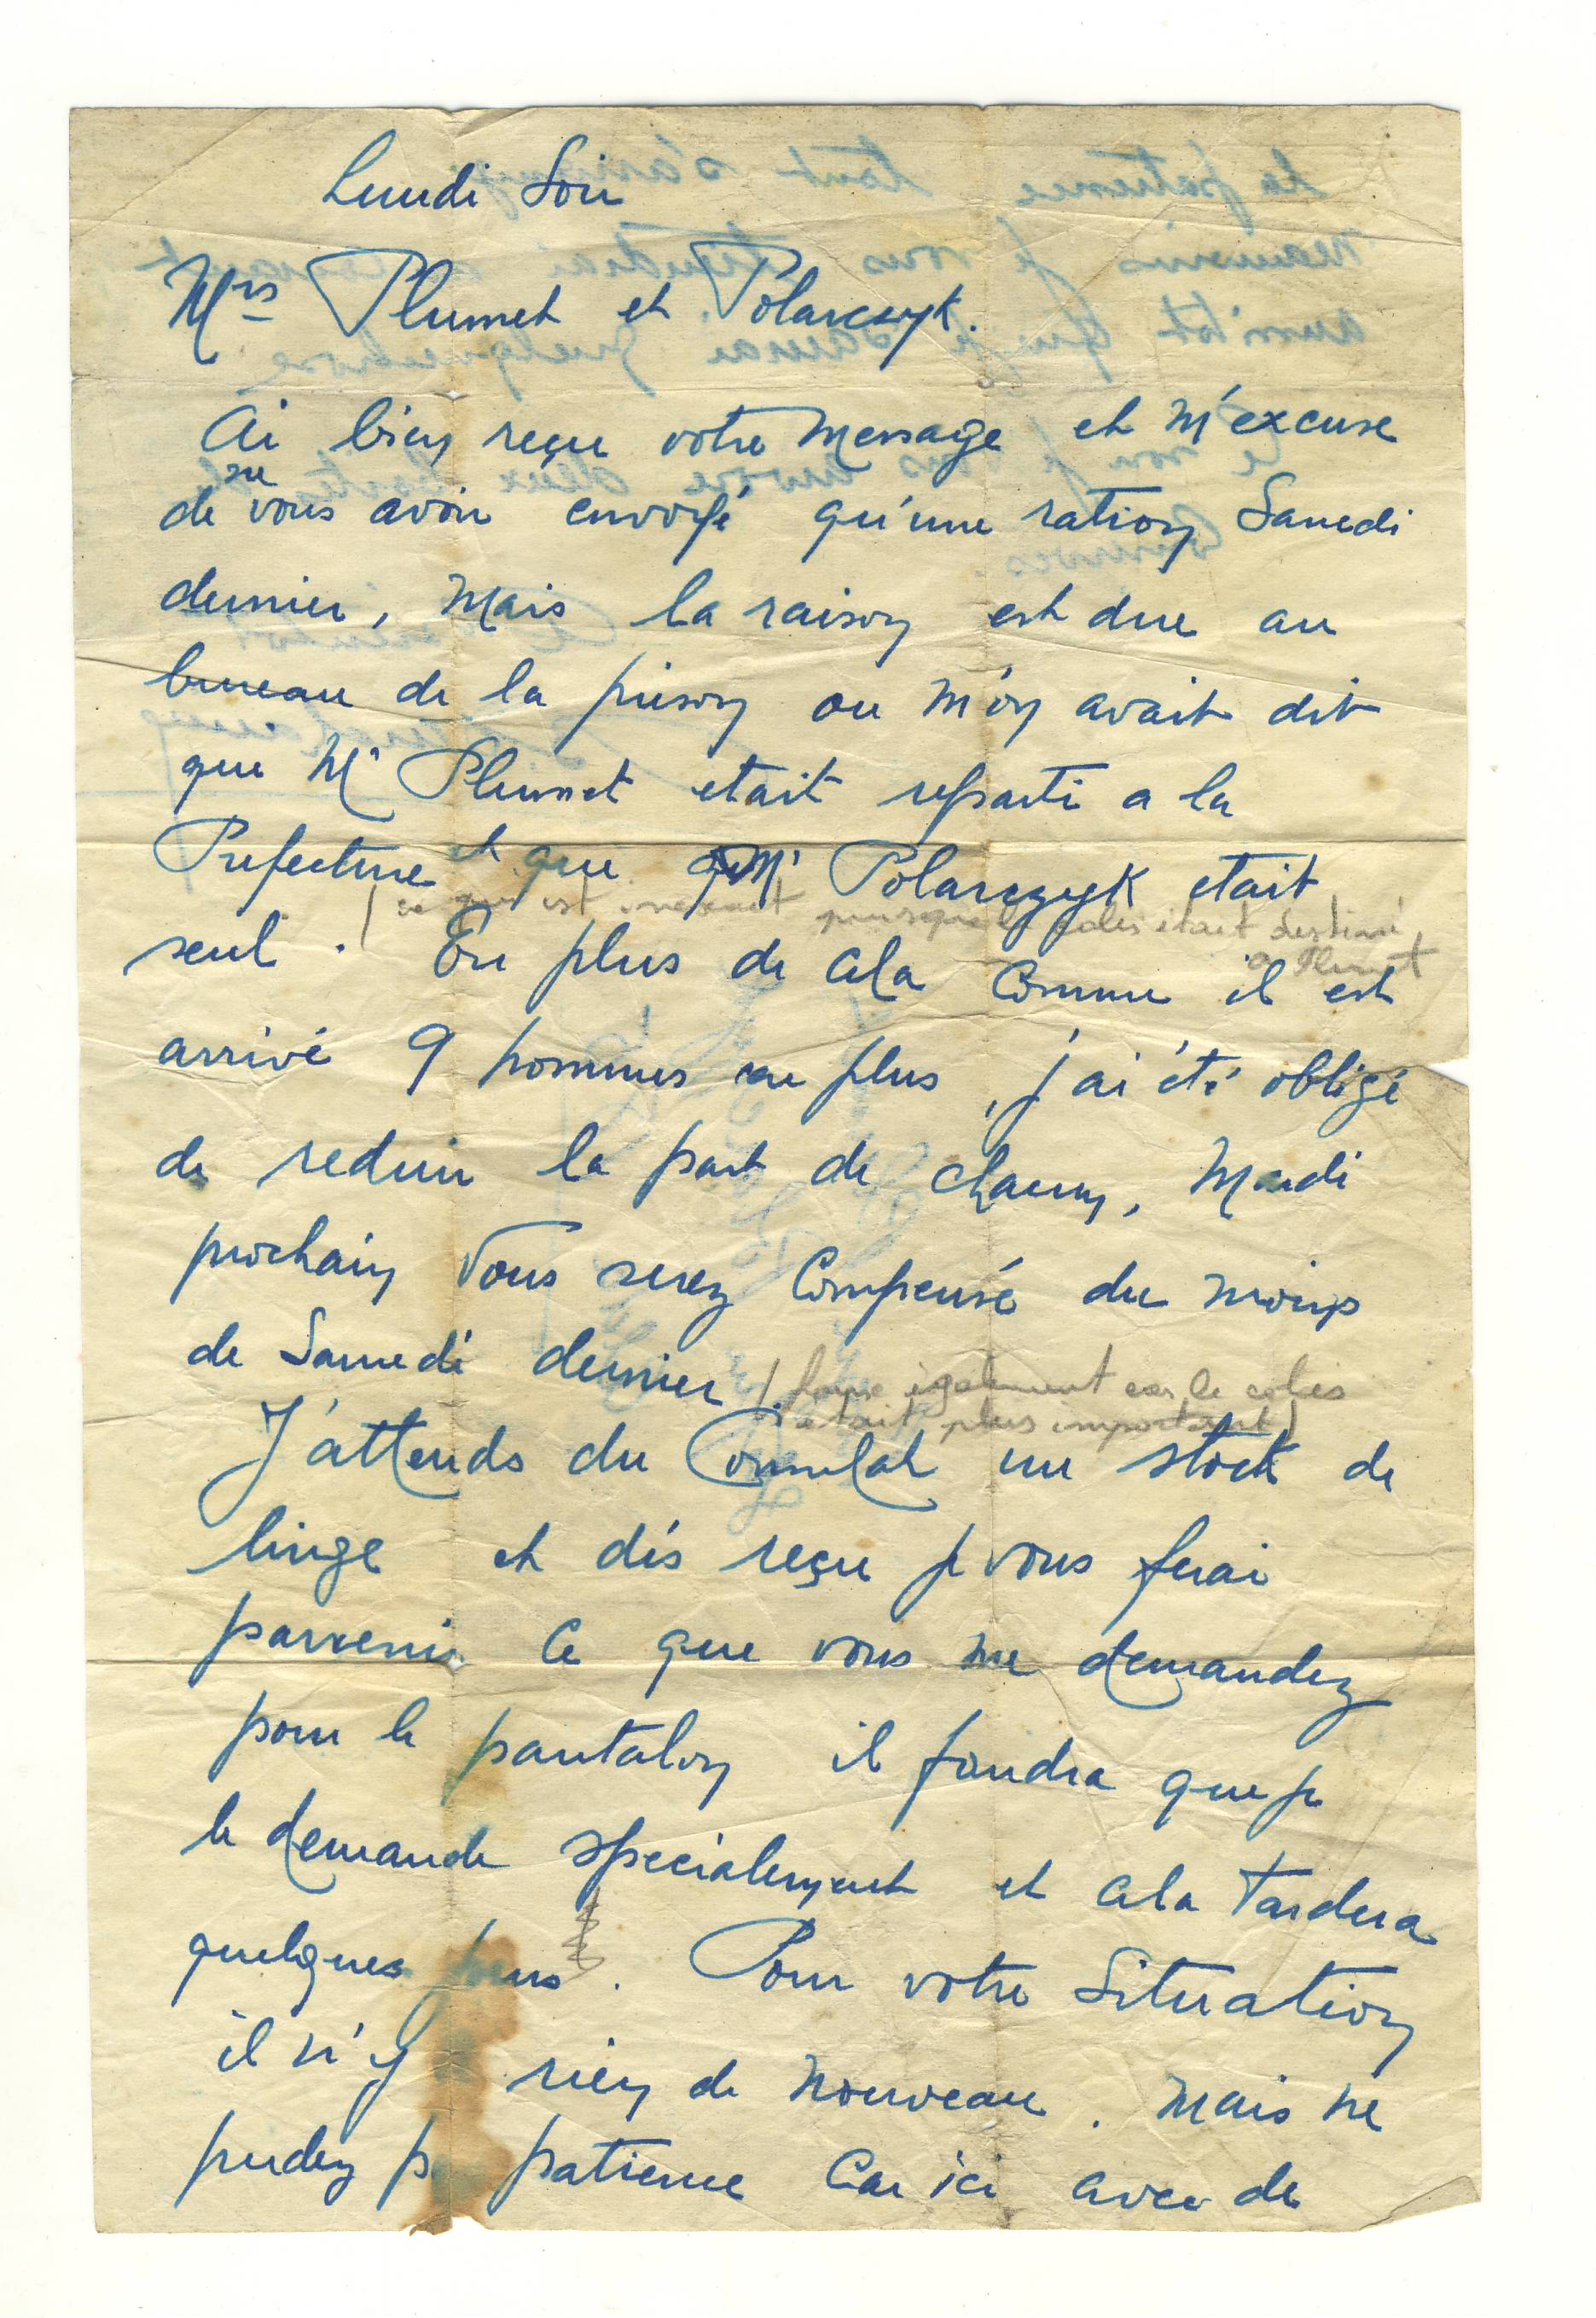 Lundi Soir
Mrs Plumet et Polarczyk.
Ai bien reçu votre Message et M'excuse
de ne vous avoir envoyé qu'une ration Samedi
dernier, Mais la raison est due au
bureau de la prison ou M'on avait dit
que Mr Plumet etait reparti a la
Prefecture et que Mr Polarczyk etait
(ce qui est inexact puisque le colis était destiné
à Plumet
seul. En plus de cela Comme il est
arrivé 9 hommes en plus, j'ai été obligé
de reduir la part de chacun, Mardi
prochain Vous serez Compensé du moins
de Samedi dernier.
(fausse également car le colis
était plus important)
J'attends du Consulat un stock de
linge et dés reçu je vous ferai
parvenir Ce que vous me demandez
pour le pantalon il faudra que je
le demande specialement et cela Tardera
quelques jours. Pour votre Situation
il n'y rien de Nouveau. Mais ne
perdez pas patience Car ici avec de